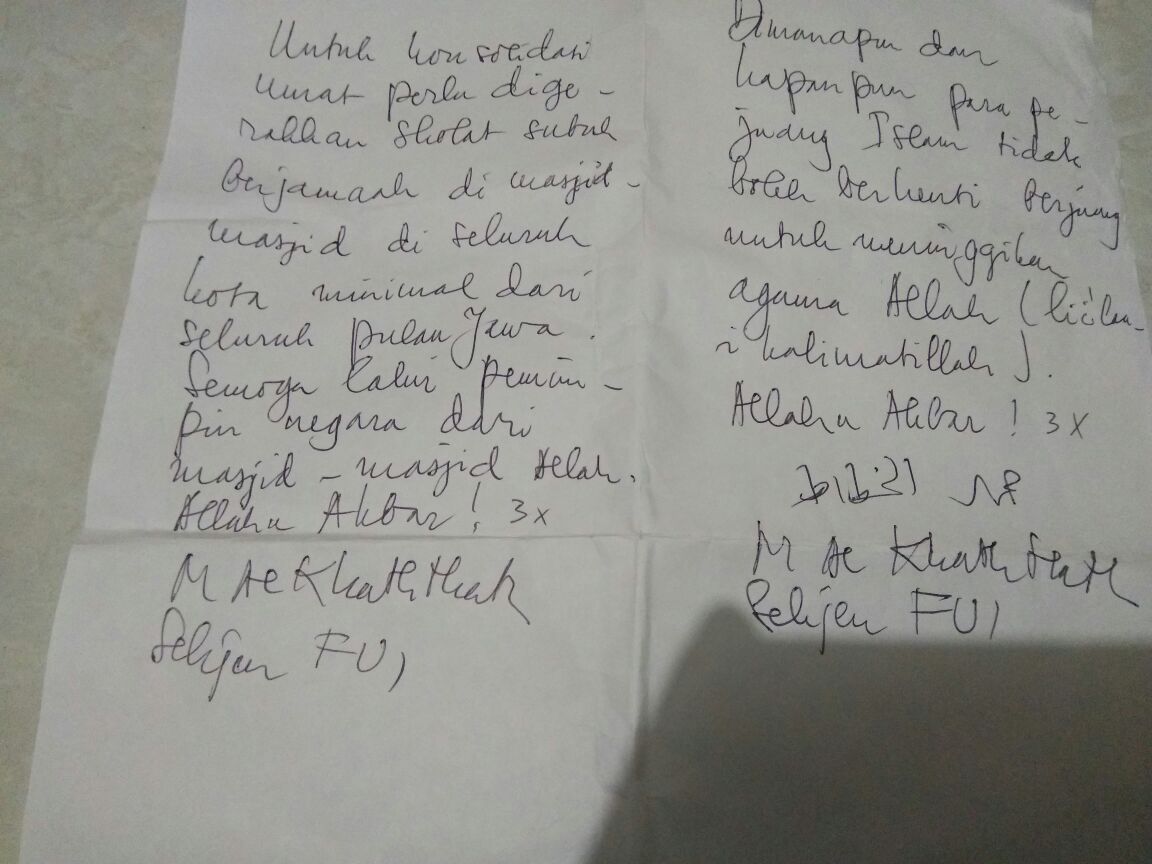 Untuk konsolidasi
umat perlu dige-
rakkan sholat subuh
berjamaah di masjid-
masjid di seluruh
kota minimal dari
seluruh pulau Jawa.
Semoga lahir pemim-
pin negara dari
masjid-masjid Allah.
Allahu Akbar! 3x
M Al Khaththath
Sekjen FUI
Dimanapun dan
kapanpun para pe-
juang Islam tidak
boleh berhenti berjuang
untuk meninggikan
agama Allah (li i'lau-
i kalimatillah).
Allahu Akbar! 3x
M Al Khaththath
Sekjen FUI